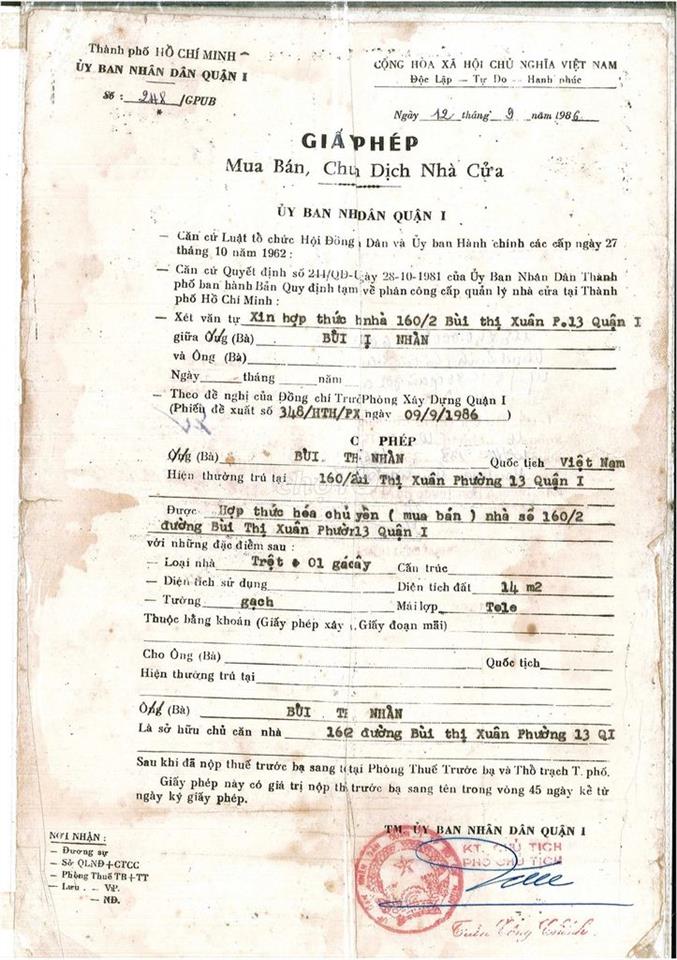 Thành phố HỒ CHÍ MINH
ỦY BAN NHÂN DÂN QUẬN I
Số : 248 /GPUB
CỘNG HÒA XÃ HỘI CHỦ NGHĨA VIỆT NAM
Độc Lập — Tự Do — Hạnh phúc
Ngày 12 tháng 9 năm 1986
GIẤY PHÉP
Mua Bán, Chu Dịch Nhà Cửa
ỦY BAN NHDÂN QUẬN I
— Căn cứ Luật tổ chức Hội Đồng Dân và Ủy ban Hành chính các cấp ngày 27
tháng 10 năm 1962 :
— Căn cứ Quyết định số 244/QĐ-Ugày 28-10-1981 của Ủy Ban Nhân Dân Thành
phố ban hành Bản Quy định tạm về phân công cấp quản lý nhà cửa tại Thành
phố Hồ Chí Minh :
— Xét văn tự Xin hợp thức hnhà 160/2 Bùi thị Xuân P.13 Quận I
giữa Ông (Bà) BÙI Ị NHÀN
và Ông (Bà)
Ngày tháng năm
— Theo đề nghị của Đồng chí TrưPhòng Xây Dựng Quận I
(Phiếu đề xuất số 348/HTH/PX ngày 09/9/1986 )
C PHÉP
Ông (Bà) BÙI TH NHÀN Quốc tịch Việt Nam
Hiện thường trú tại 160/2ùi Thị Xuân Phường 13 Quận I
Được Hợp thức hóa chuyền ( mua bán ) nhà số 160/2
đường Bùi Thị Xuân Phườ13 Quận I
với những đặc điểm sau :
— Loại nhà Trệt + 01 gácây Cấu trúc
— Diện tích sử dụng Diện tích đất 14 m2
— Tường gạch Mái lợp Tole
Thuộc bằng khoán (Giấy phép xây , Giấy đoạn mãi)
Cho Ông (Bà) Quốc tịch
Hiện thường trú tại
Ông (Bà) BÙI TH NHÀN
Là sở hữu chủ căn nhà 160 đường Bùi thị Xuân Phường 13 QI
Sau khi đã nộp thuế trước bạ sang tại Phòng Thuế Trước bạ và Thổ trạch T. phố.
Giấy phép này có giá trị nộp th trước bạ sang tên trong vòng 45 ngày kể từ
ngày ký giấy phép.
NƠI NHẬN :
— Đương sự
— Sở QLNĐ+CTCC
— Phòng Thuế TB+TT
— Lưu . — VP.
— NĐ.
TM. ỦY BAN NHÂN DÂN QUẬN I
KT. CHỦ TỊCH
PHÓ CHỦ TỊCH